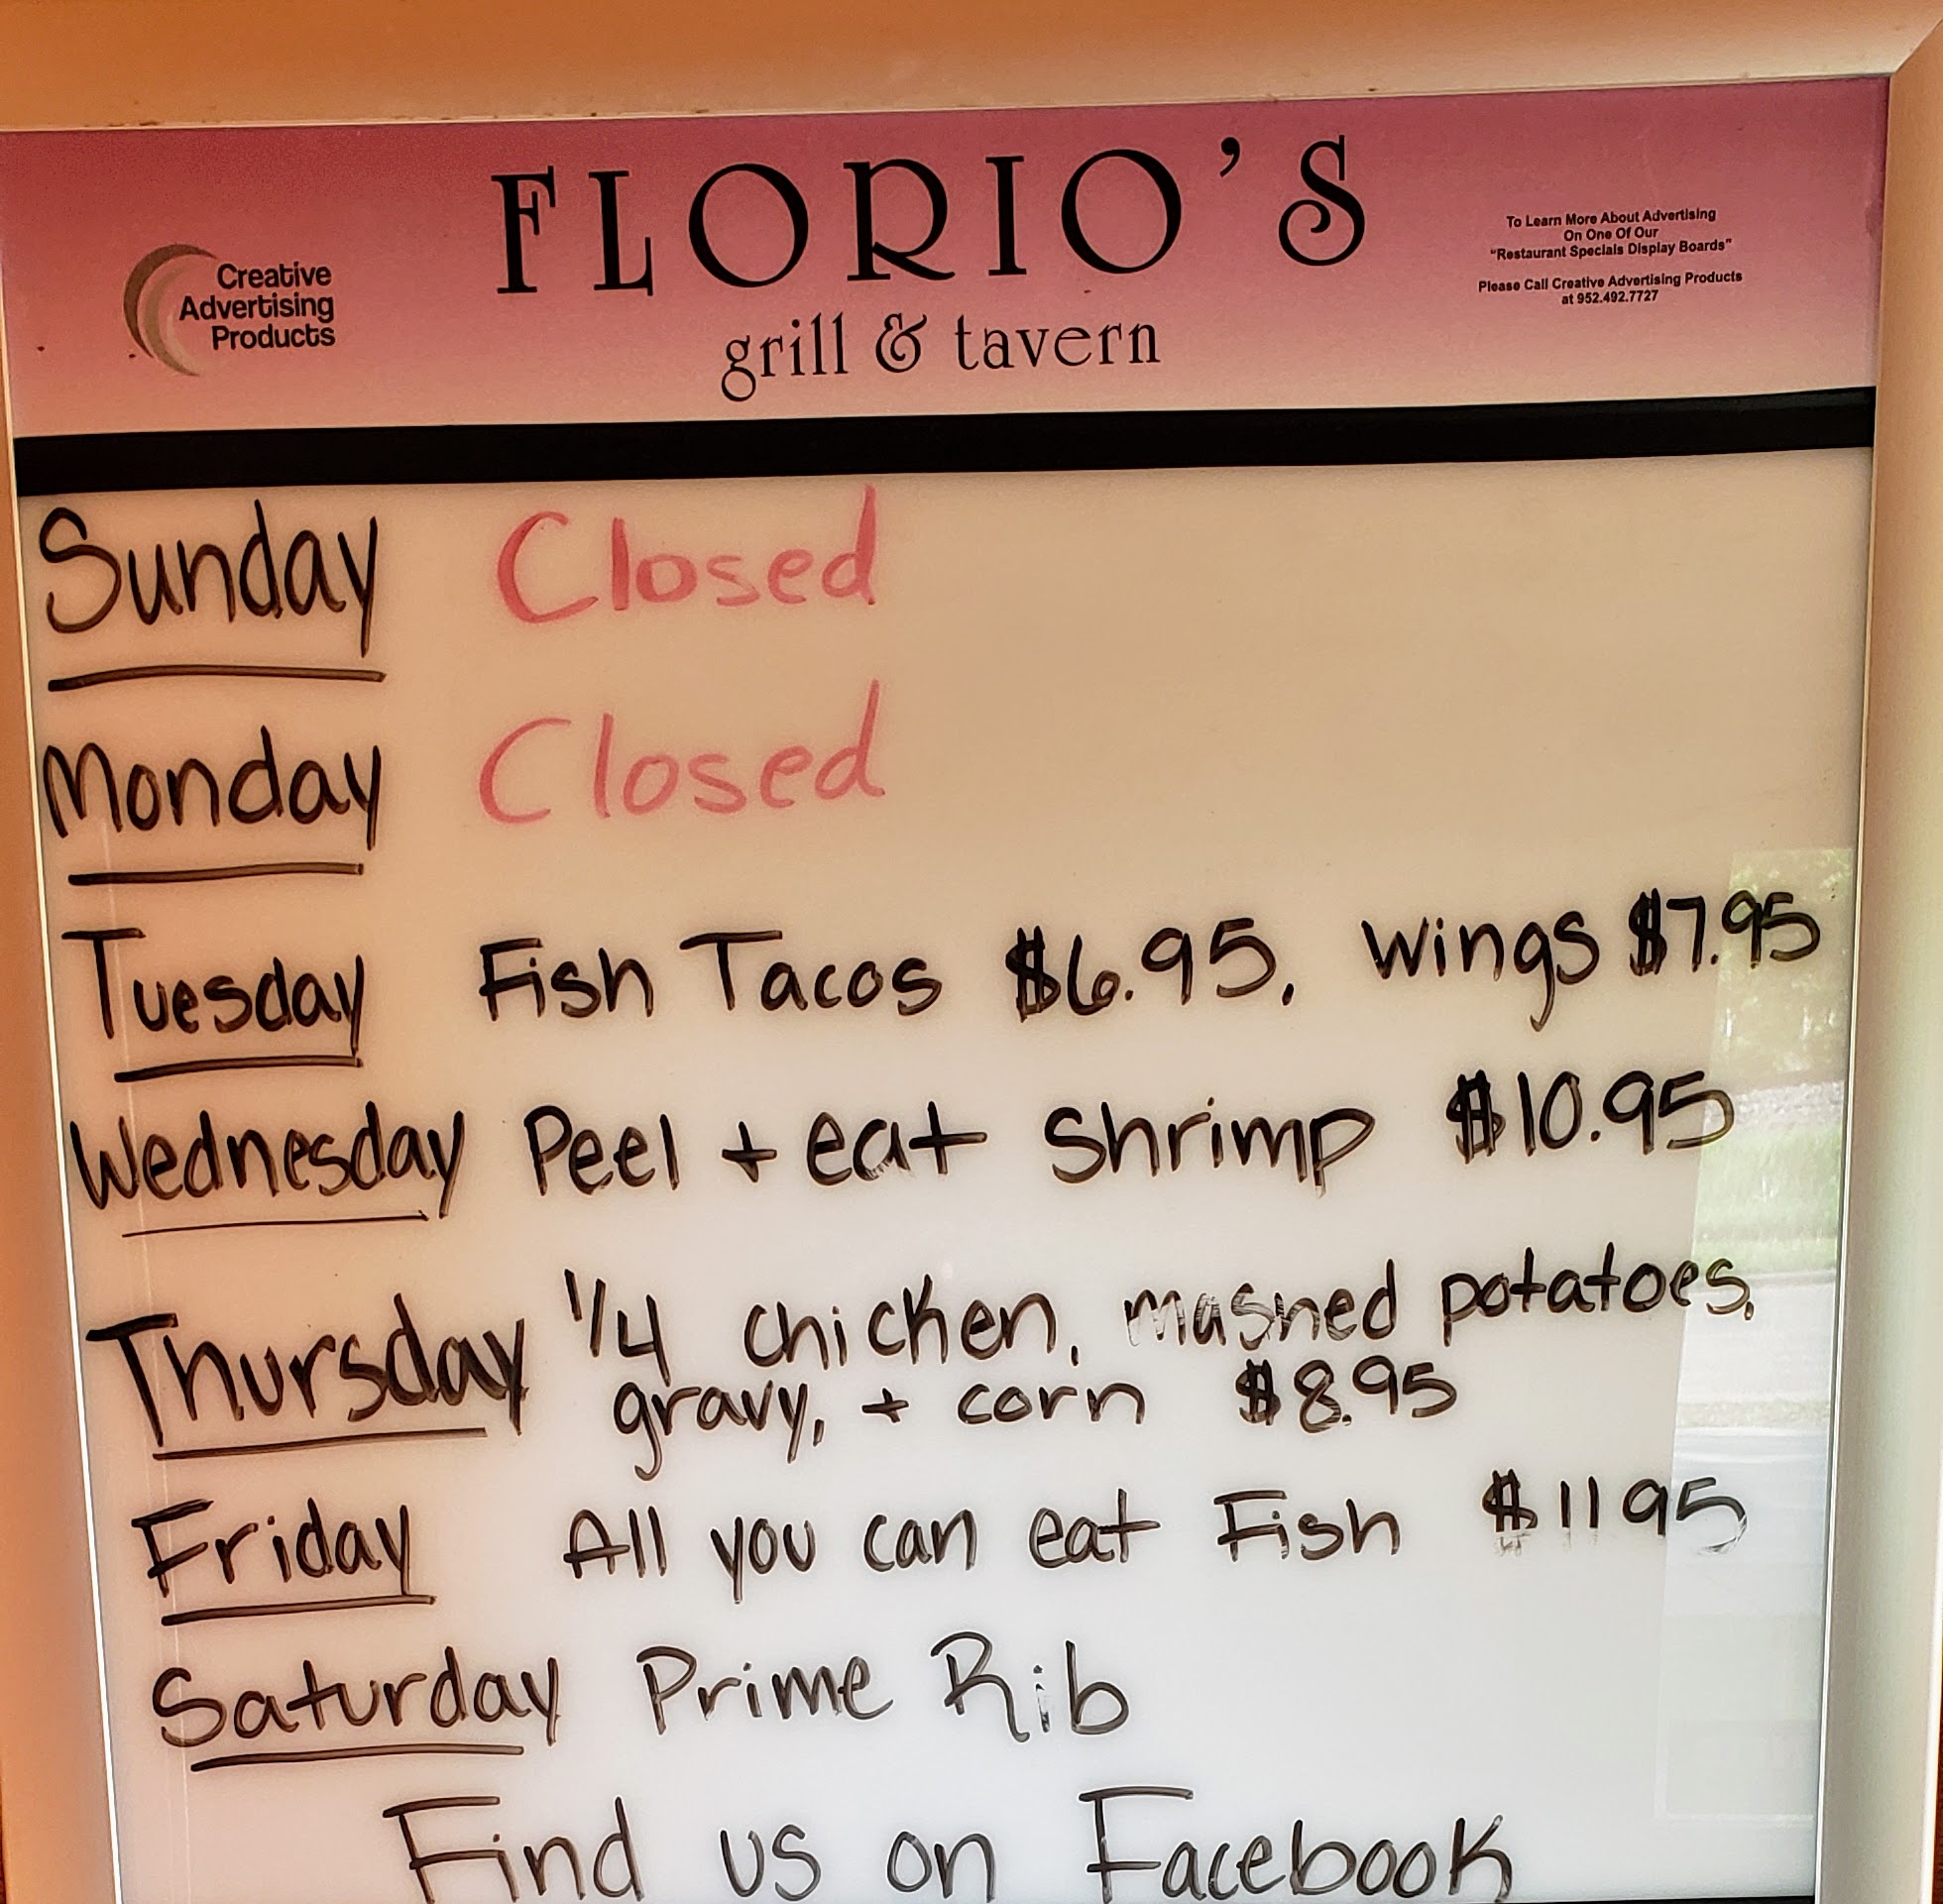 FLORIO'S
grill & tavern
Creative
Advertising
Products
To Learn More About Advertising
On One Of Our
"Restaurant Specials Display Boards"
Please Call Creative Advertising Products
at 952.492.7727
Sunday Closed
Monday Closed
Tuesday Fish Tacos $6.95, wings $7.95
Wednesday Peel + eat Shrimp $10.95
Thursday 1/4 chicken, mashed potatoes,
gravy, + corn $8.95
Friday All you can eat Fish $11 95
Saturday Prime Rib
Find us on Facebook